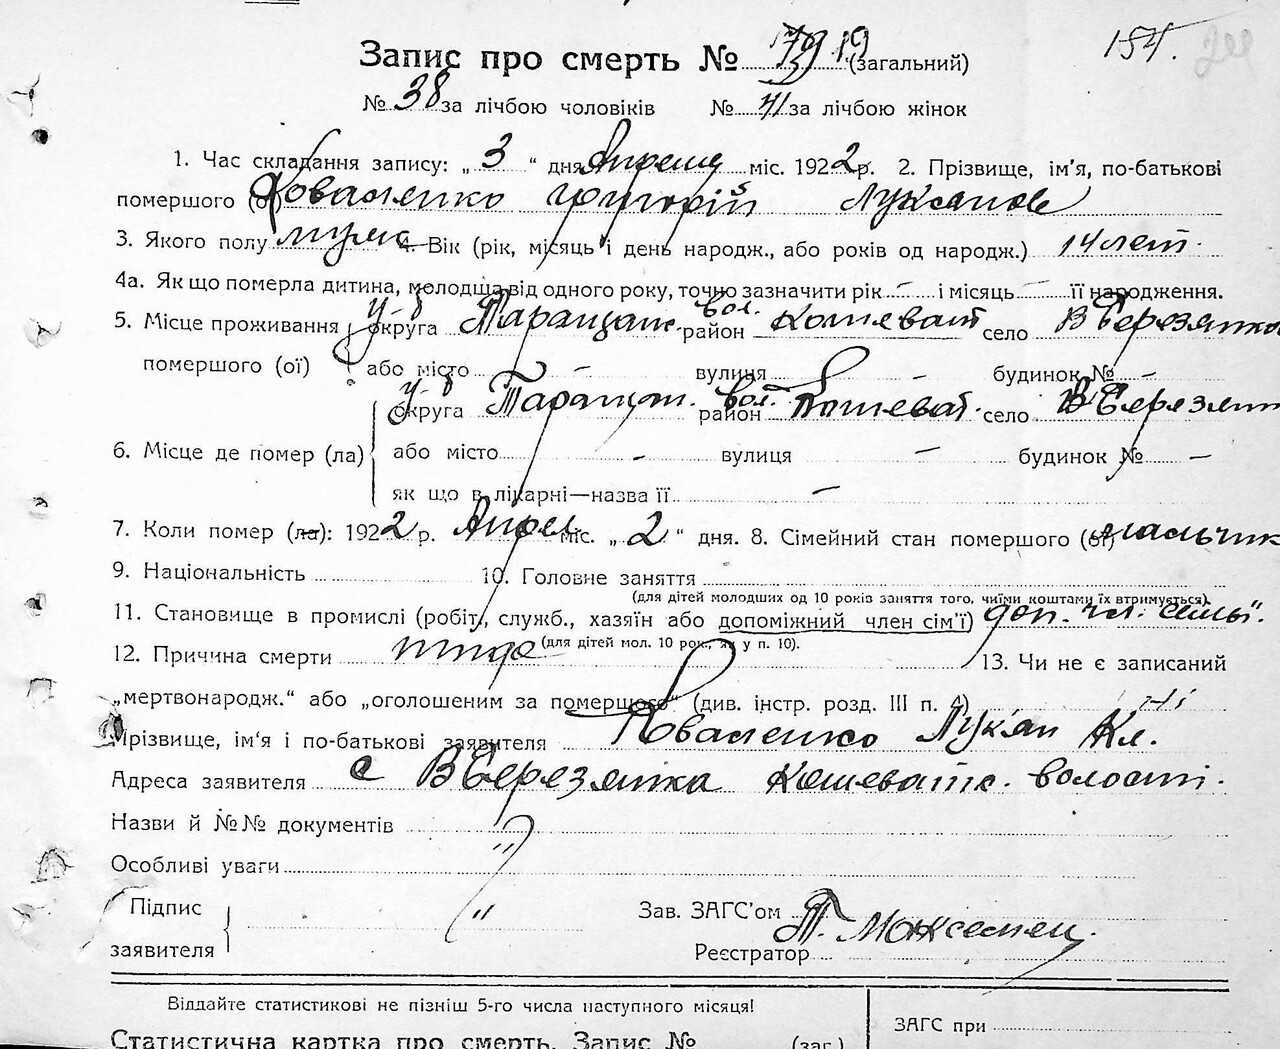 154.
Запис про смерть № 79 (загальний)
№ 38 за лічбою чоловіків № 41 за лічбою жінок
1. Час складання запису: „ 3 “ дня Апреля міс. 1922 р. 2. Прізвище, ім'я, по-батькові
помершого (ої) Коваленко Григорій Лукянов
3. Якого полу муж. 4. Вік (рік, місяць і день народж., або років од народж.) 14 лет.
4а. Як що померла дитина, молодша від одного року, точно зазначити рік – і місяць – її народження.
5. Місце проживання у-б округа Таращанс. вол. район Кошеват село В Березянка
помершого (ої) або місто – вулиця – будинок № –
у-б округа Таращан. вол. район Кошеват. село В Березян
6. Місце де помер (ла) або місто – вулиця – будинок № –
як що в лікарні—назва її –
7. Коли помер (ла): 1922 р. Апрел міс. „ 2 “ дня. 8. Сімейний стан помершого (ої) мальчик
9. Національність 10. Головне заняття
(для дітей молодших од 10 років заняття того, чиїми коштами їх втримується).
11. Становище в промислі (робіт., служб., хазяїн або допоміжний член сім'ї) доп. чл. семьи.
12. Причина смерти (для дітей мол. 10 рок., як у п. 10). 13. Чи не є записаний
„мертвонародж.“ або „оголошеним за помершого“ (див. інстр. розд. III п. 4) Ні
Прізвище, ім'я і по-батькові заявителя Коваленко Лук'ян Кл.
Адреса заявителя с В Березянка Кошеватс. волості.
Назви й №№ документів "
Особливі уваги
Підпис заявителя " Зав. ЗАГС'ом
Реєстратор
Віддайте статистикові не пізніш 5-го числа наступного місяця!
ЗАГС при
Статистична картка про смерть. Запис № (заг.)